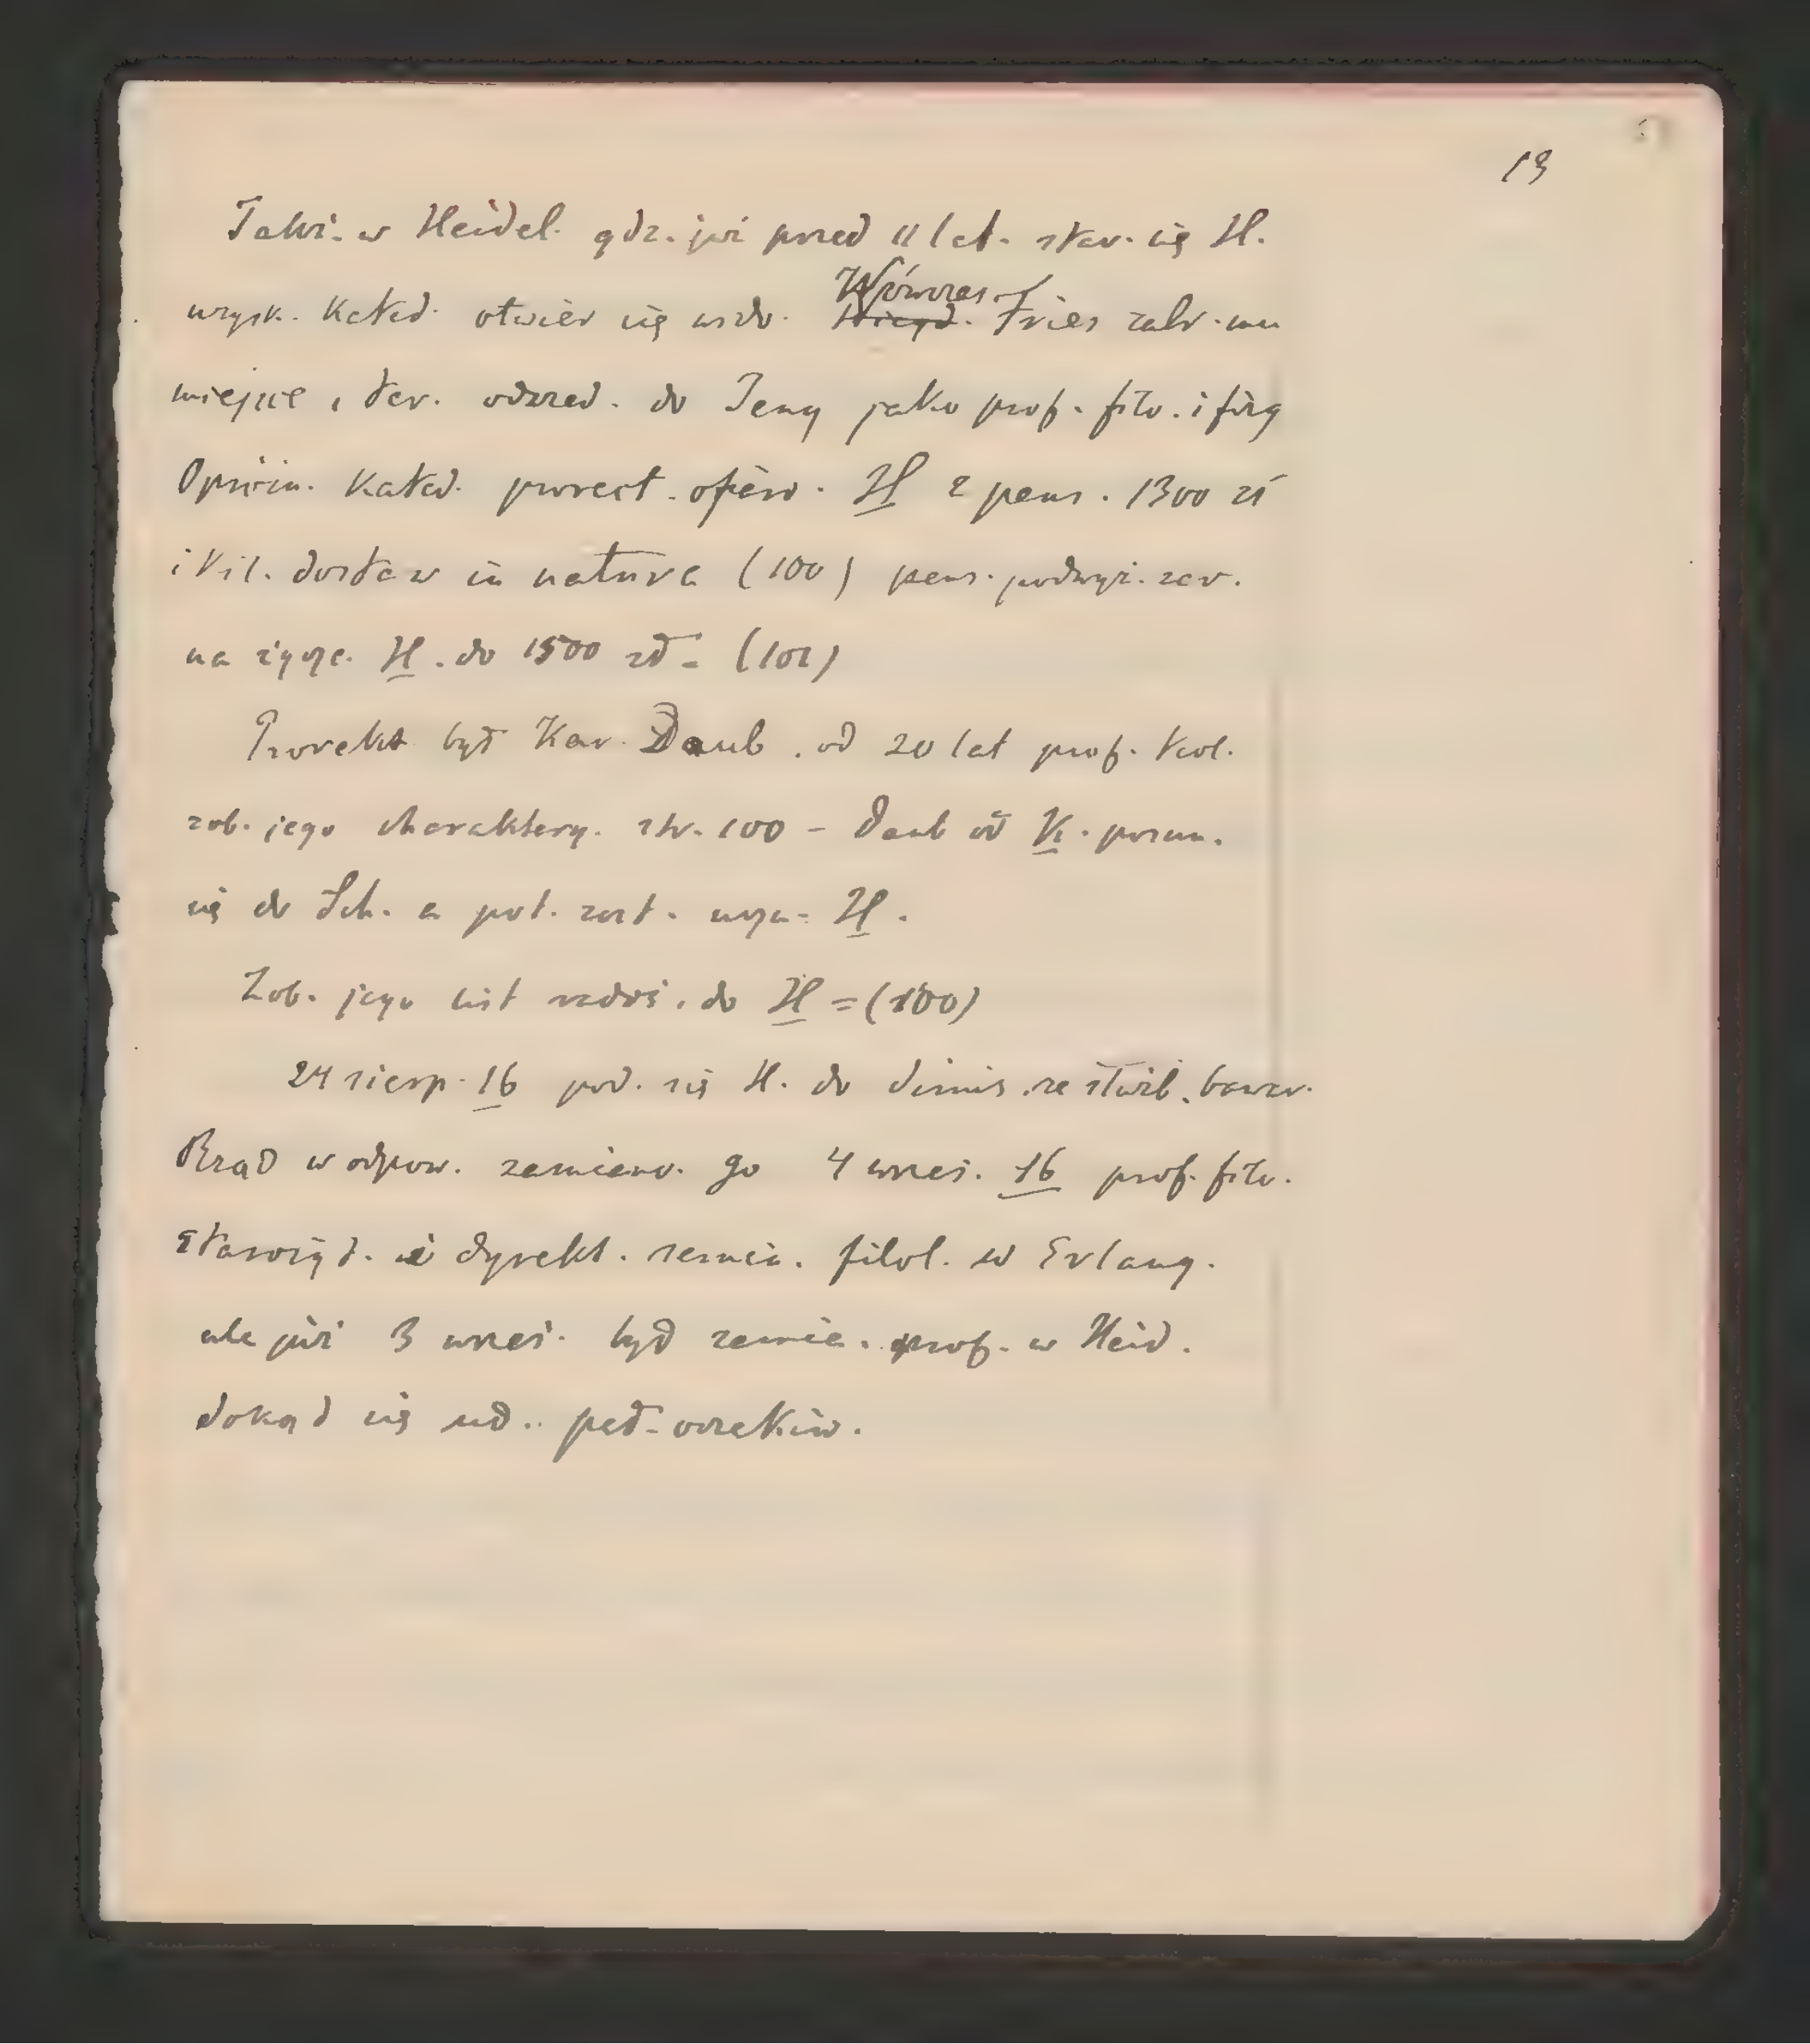 13
Także. w Heidel. gdz. już przed 11 lat. star. się H.
uzysk. kated. otwier się wido. Wówczas Fries zabr. mu
miejsce, ter. odszed. do Jeny jako prof. filo. i fizy
Opróżn. kated. prorect. ofiar. H z pens. 1300 zł
i kil. dostaw in natura (100) pens. podwyż. zar.
na życze. H. do 1500 zł. (101)
Prorekt był Kar. Daub. od 20 lat prof. teol.
zob. jego charaktery. str. 100 – Daub od K. porzu.
się do Sch. a pot. zost. uczn. H.
Zob. jego list radoś. do H = (100)
24 sierp. 16 pod. się H. do dimis. ze służb. bawar.
Rząd w odpow. zamiano. go 4 wrześ. 16 prof. filo.
starożyt. i dyrekt. semin. filol. w Erlang.
ale już 3 wrześ. był zamia. prof. w Heid.
dokąd się ud.. peł. oczekiw.